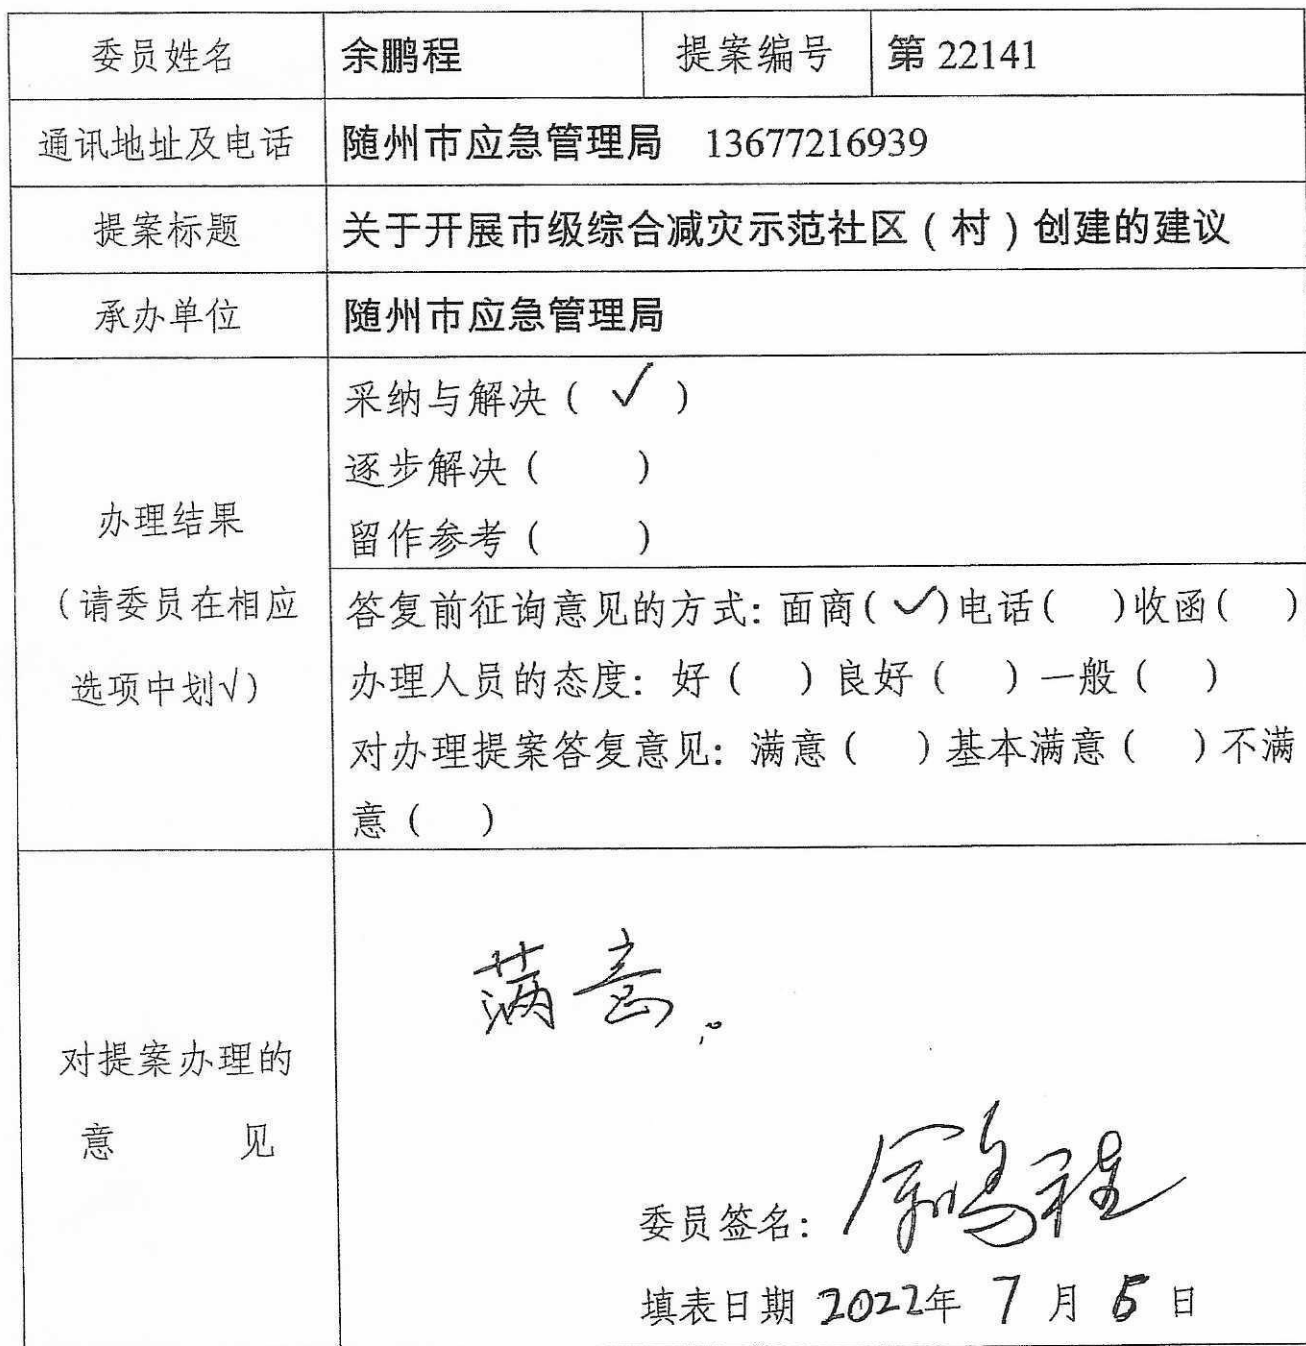 委员姓名 余鹏程 提案编号 第 22141
通讯地址及电话 随州市应急管理局 13677216939
提案标题 关于开展市级综合减灾示范社区（村）创建的建议
承办单位 随州市应急管理局
办理结果
（请委员在相应
选项中划√）
采纳与解决（ √ ）
逐步解决（ ）
留作参考（ ）
答复前征询意见的方式：面商(√)电话( )收函( )
办理人员的态度：好（ ）良好（ ）一般（ ）
对办理提案答复意见：满意（ ）基本满意（ ）不满
意（ ）
对提案办理的
意 见
满意。
委员签名：余鹏程
填表日期 2022年 7 月 5 日